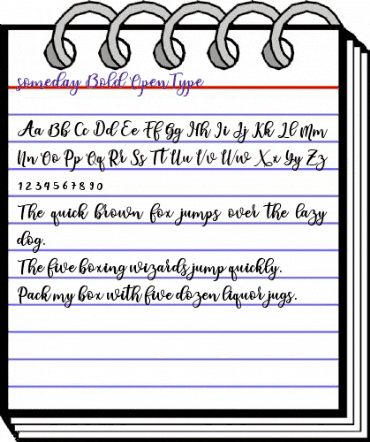 someday Bold OpenType
Aa Bb Cc Dd Ee Ff Gg Hh Ii Jj Kk Ll Mm
Nn Oo Pp Qq Rr Ss Tt Uu Vv Ww Xx Yy Zz
1234567890
The quick brown fox jumps over the lazy
dog.
The five boxing wizards jump quickly.
Pack my box with five dozen liquor jugs.